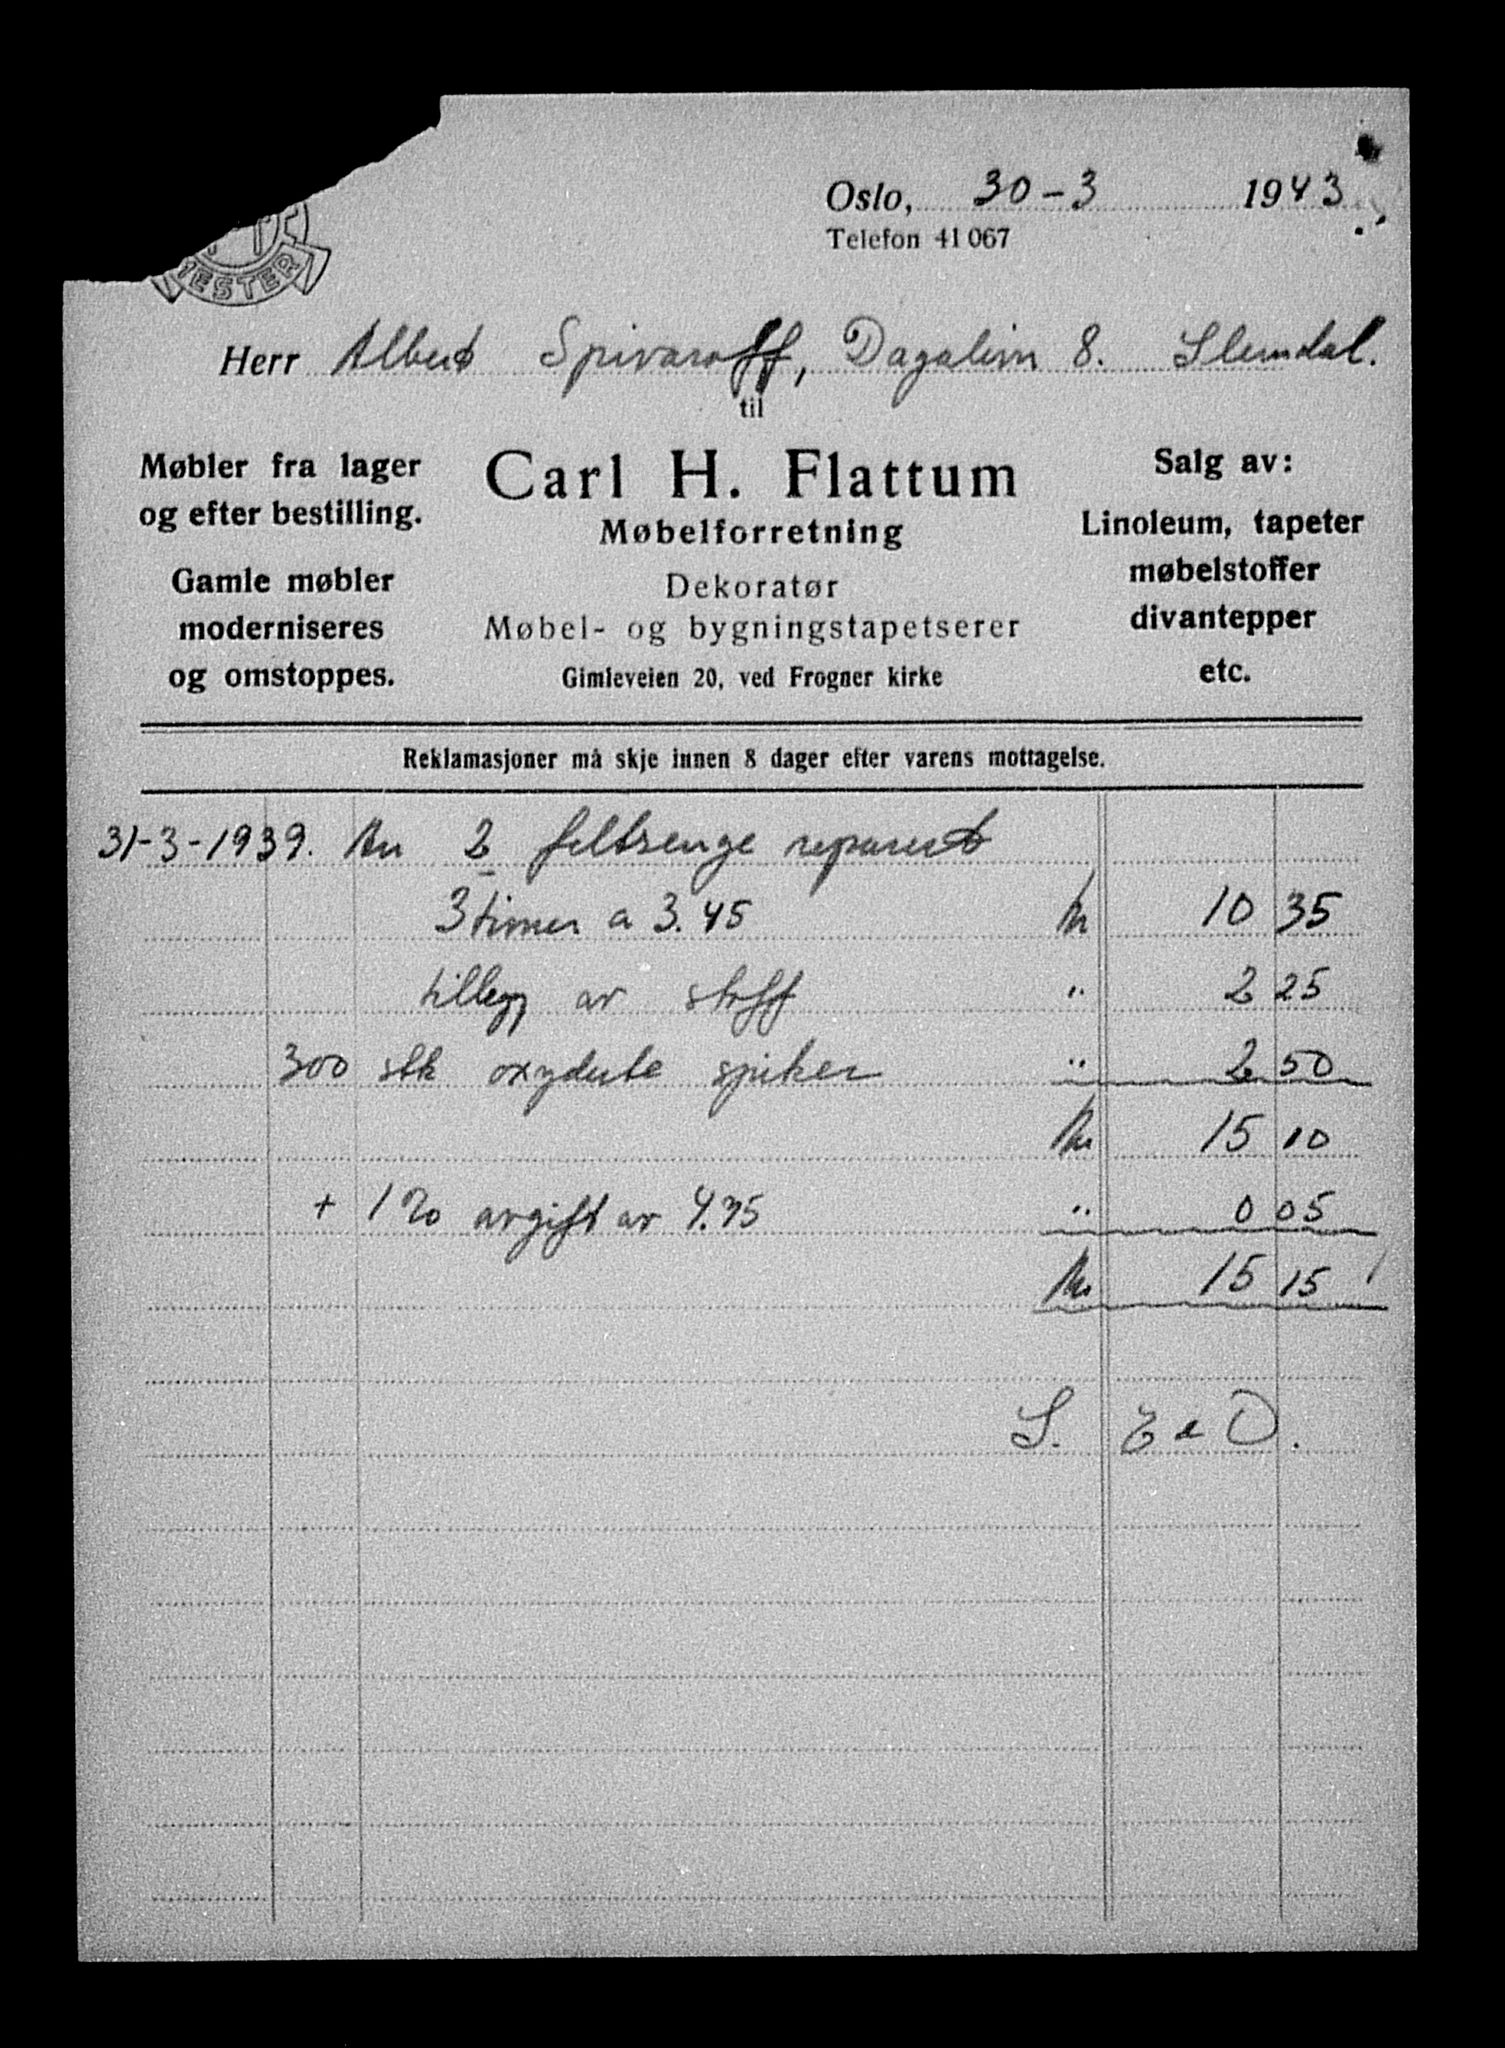 MESTER
Oslo, 30-3 1943
Telefon 41067
Herr Albert Spivaroff, Dagalivn 8. Slemdal.
til
Møbler fra lager
og efter bestilling.
Gamle møbler
moderniseres
og omstoppes.
Carl H. Flattum
Møbelforretning
Dekoratør
Møbel- og bygningstapetserer
Gimleveien 20, ved Frogner kirke
Salg av:
Linoleum, tapeter
møbelstoffer
divantepper
etc.
Reklamasjoner må skje innen 8 dager efter varens mottagelse.
31-3-1939. An 2 feltsenge reparert
3 timer a 3.45 kr 10 35
tillegg av stoff " 2 25
300 stk oxyderte spiker " 2 50
Kr 15 10
+ 1% avgift av 4.75 " 0 05
Kr 15 15
S. E & O.